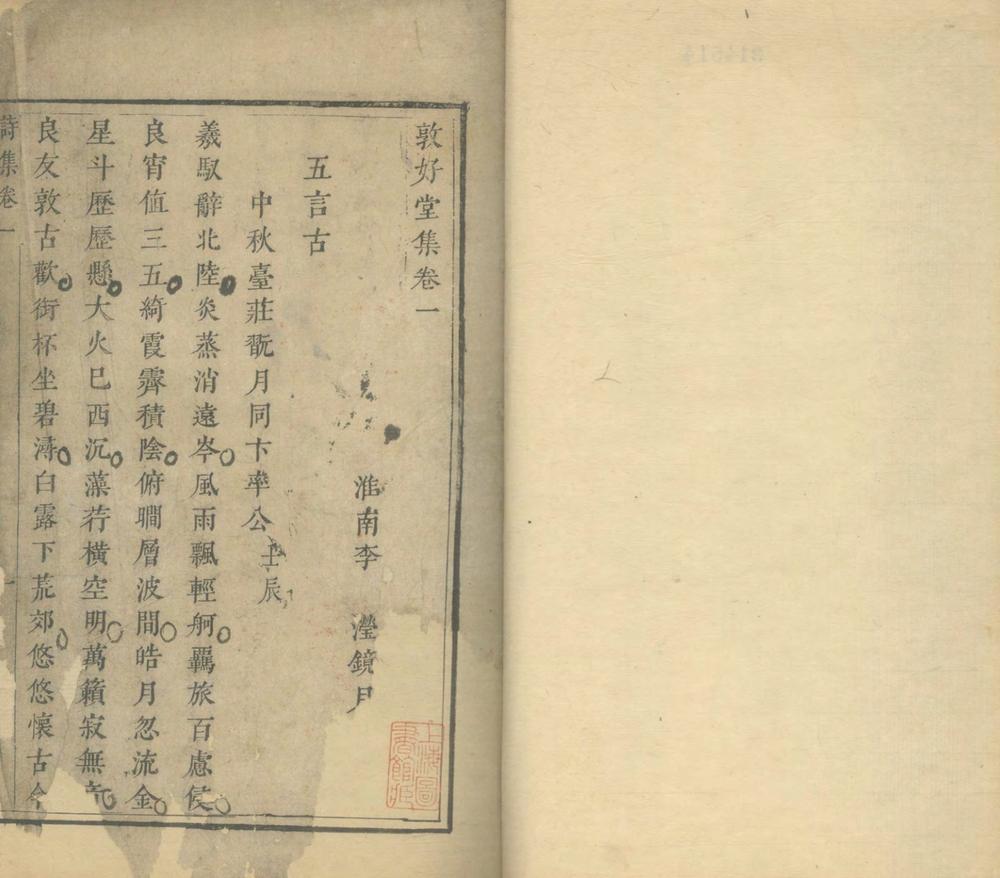 敦好堂集卷一
淮南李 瀅鏡月
五言古
中秋臺莊翫月同卞犖公壬辰
羲馭辭北陸炎蒸消遠岑風雨飄輕舸羈旅百慮侵
良宵值三五綺霞霽積陰俯瞷層波間皓月忽流金
星斗歷歷懸大火已西沉藻荇橫空明萬籟寂無
良友敦古歡銜杯坐碧潯白露下荒郊悠悠懷古今
詩集卷一
上海圖
書館藏